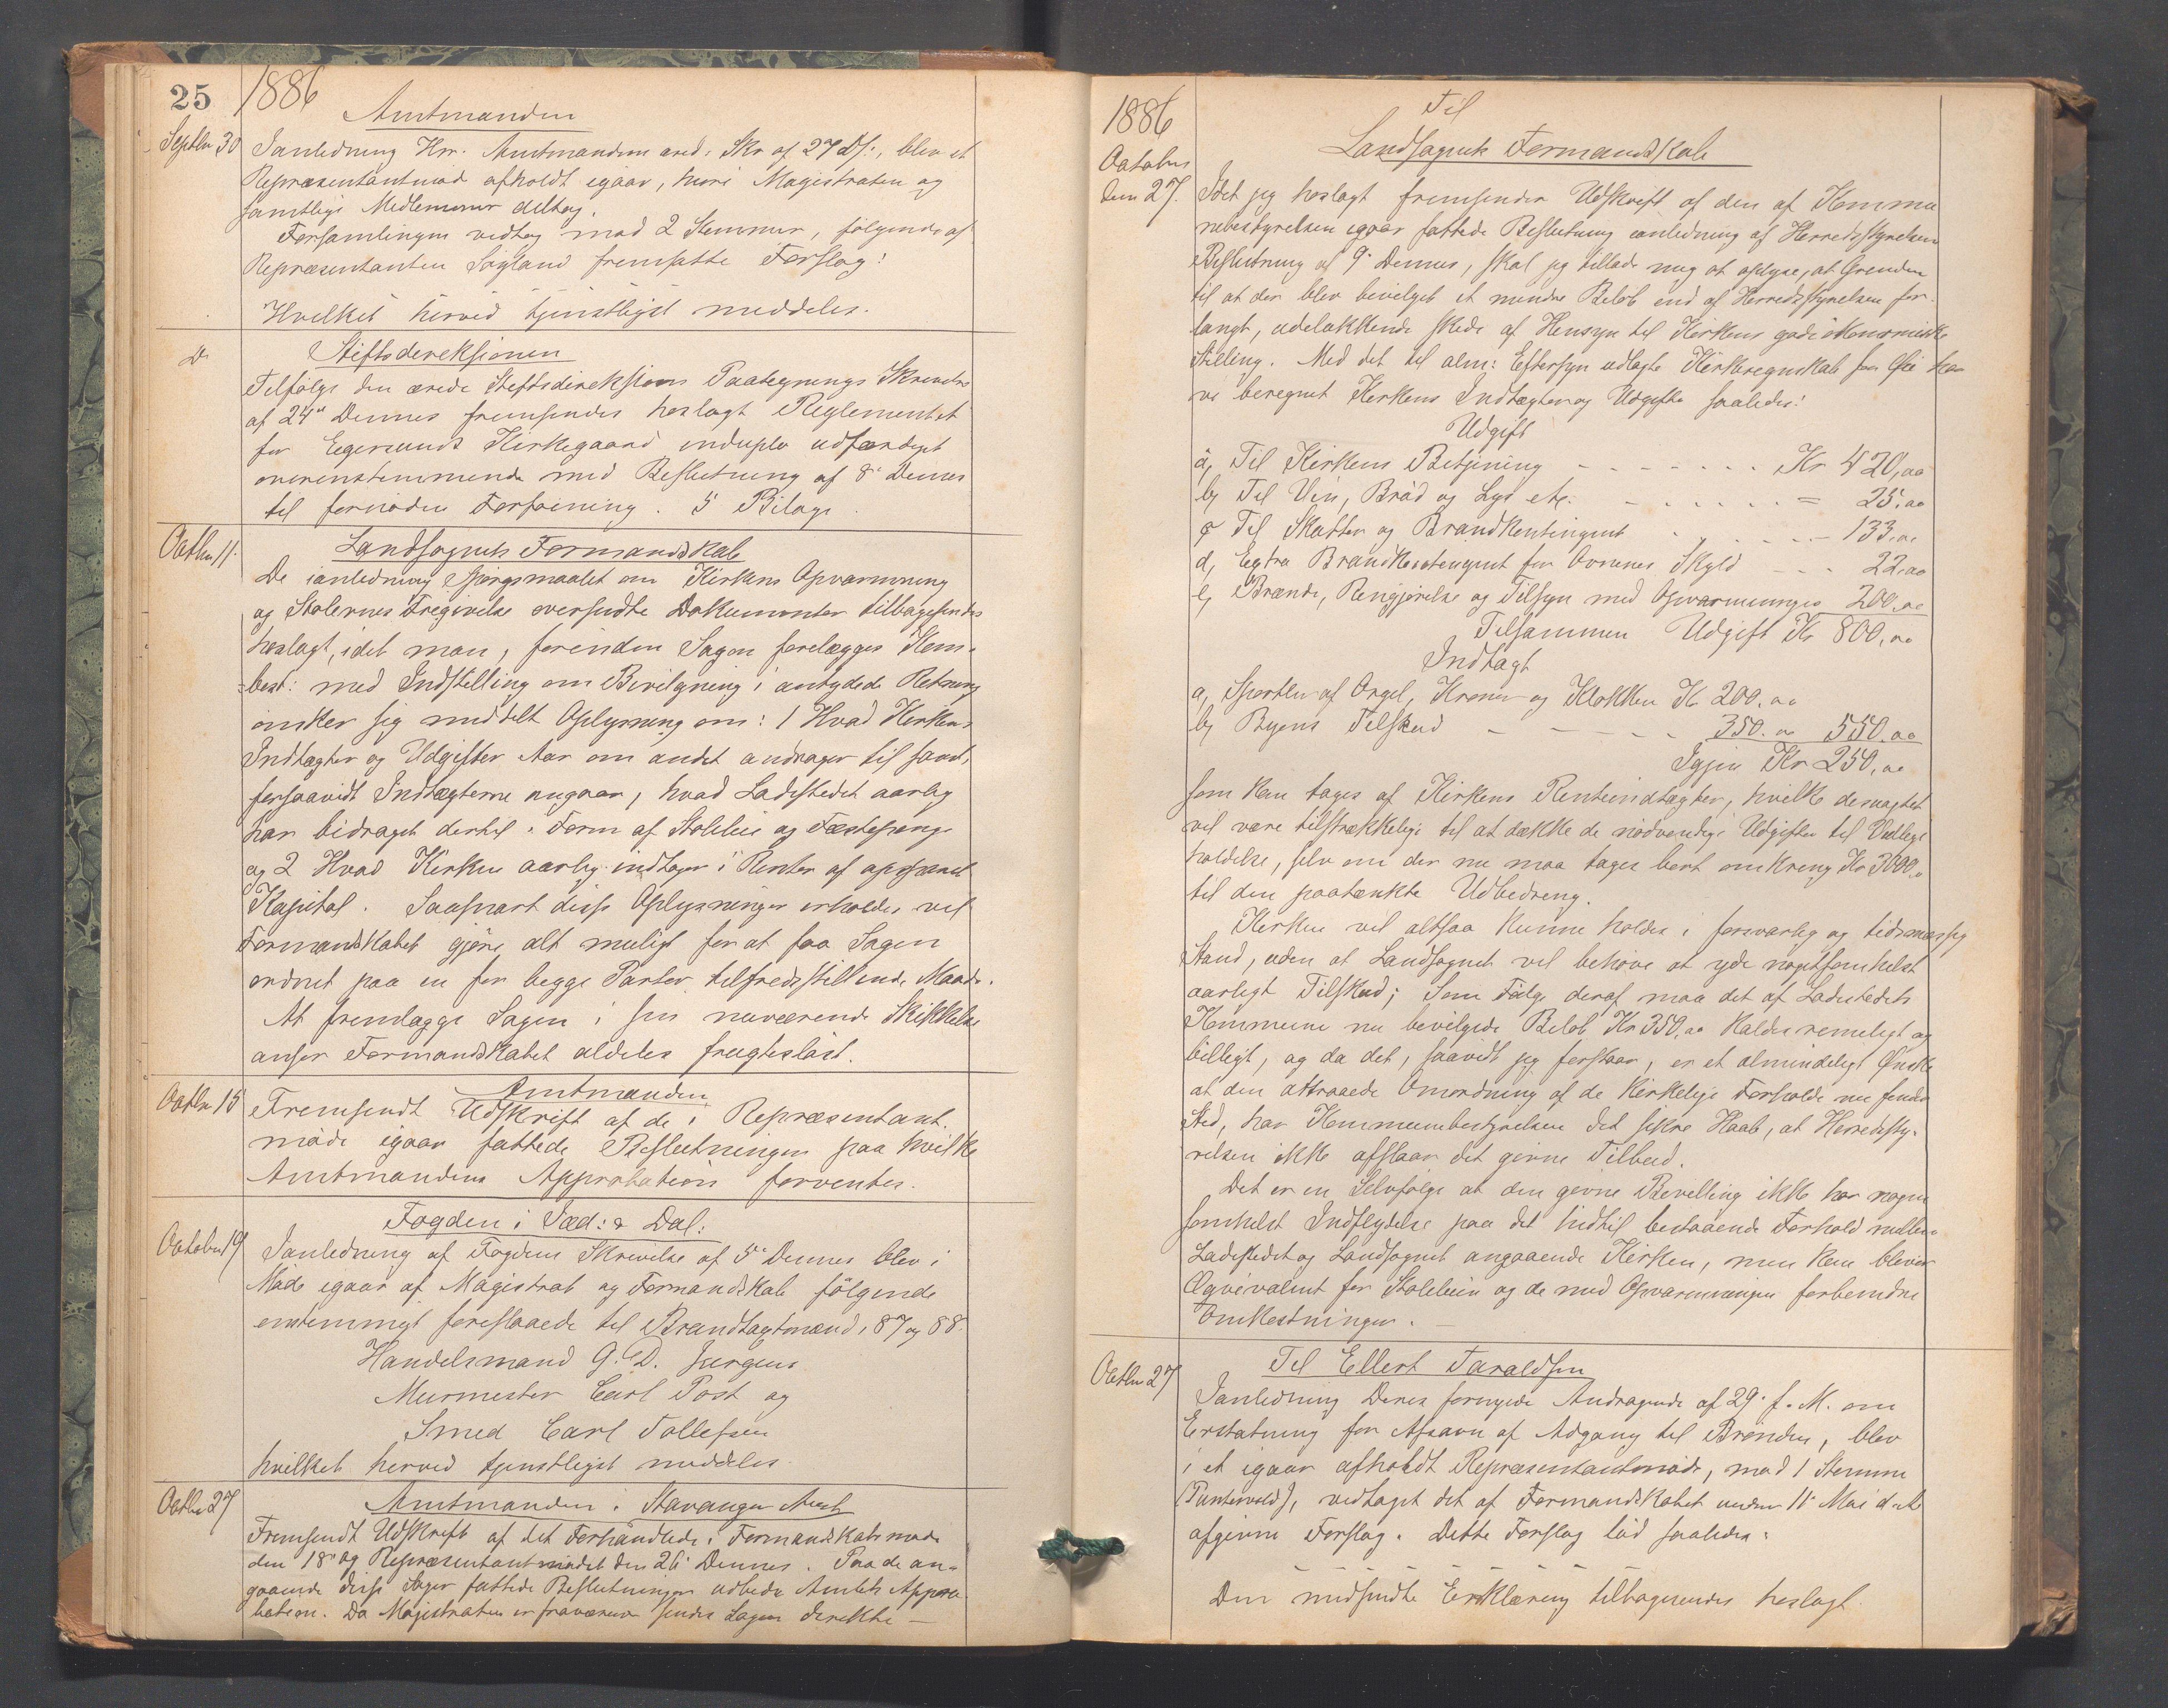 25 1886
Amtmanden
Septbr 30 Ianledning Hrr. Amtmandens ærd. Skr af 27 Ds:, blev et
Repræsentantmöde afholdt igaar, hvori Magistraten og
samtlige Medlemmer deltog.
Forsamlingen vedtog mod 2 Stemmer, følgende af
Repræsentanten Sayland fremsatte Forslag:
Hvilket herved tjenstligst meddeles.
Do Stiftsdireksionen
Tilfølge den ærede Stiftsdireksions Paategnings Skrivelse
af 24de Dennes fremsendes hoslagt Reglementet
for Egersunds Kirkegaard induplo udfærdiget
overenstemmende med Beslutning af 8de Dennes
til fornöden Forföining. 5 Bilage.
Octbr 11. Landsognets Formandskab
De ianledning Spörgsmaalet om Kirkens Opvarmning
og Stolernes Fregivelse oversendte Dokumenter tilbagesendes
hoslagt, idet man, forinden Sagen forelægges Kom-
=best: med Indstilling om Bevilgning i antydede Retning
ønsker sig meddelt Oplysning om: 1 Hvad Kirkens
Indtægter og Udgifter Aar om andet andrager til samt,
forsaavidt Indtægterne angaar, hvad Ladestedet aarlig
har bidraget dertil i Form af Stoleleie og Fæstepenge
og 2 Hvad Kirken aarlig indtager i Renter af opsparet
Kapital. Saasnart disse Oplysninger erholdes vil
Formandskabet gjöre alt muligt for at faa Sagen
ordnet paa en for begge Parter tilfredsstillende Maade.
At fremlægge Sagen i sin nuværende Skikkelse
anser Formandskabet aldeles frugteslöst.
Octbr 15 Amtmanden
Fremsendt Udskrift af de i Repræsentant-
möde igaar fattede Beslutninger paa hvilke
Amtmandens Approbation forventes.
Fogden i Jæd: & Dal:
October 19 Ianledning af Fogdens Skrivelse af 5te Dennes blev i
Möde igaar af Magistrat og Formandskab fölgende
enstemmigt foreslaaede til Brandtagtmænd i 87 og 88.
Handelsmand G. D. Jurgens
Murmester Carl Post og
Smed Carl Tollefsen
hvilket herved tjenstligst meddeles.
Octbr 27 Amtmanden i Stavanger Amt
Fremsendt Udskrift af det Forhandlede i Formandskabsmöde
den 18de og Repræsentantmödet den 26 Dennes. Paa de an-
gaaende disse Sager fattede Beslutninger udbedes Amtets Appro-
bation. Da Magistraten er fraværende sendes Sagen direkte —
1886
Til
Landsognets Formandskab
October den 27. Idet jeg hoslagt fremsender Udskrift af den af Kommu
nebestyrelsen igaar fattede Beslutning ianledning af Herredsstyrelsen
Beslutning af 9de Dennes, skal jeg tillade mig at oplyse, at Grunden
til at der blev bevilget et mindre Beløb end af Herredsstyrelsen for-
langt, udelukkende skede af Hensyn til Kirkens gode ökonomiske
Stilling. Med det til alm: Eftersyn udlagte Kirkeregnskab for Øie har
vi beregnet Kirkens Indtægter og Udgifter saaledes:
Udgift
a, Til Kirkens Betjening - - - - - Kr 420,00
b, Til Vin, Bröd og Lys etc. - - - - = 25,00
c, Til Skatter og Brandkontingent - - - - 133,00
d, Extra Brandkontingent for Ovnenes Skyld - - - 22,00
e, Brænde, Rengjörelse og Tilsyn med Opvarmningen 200,00
Tilsammen Udgift Kr 800,00
Indtægt
a, Sportler af Orgel, Kroner og Klokken Kr 200.00
b, Byens Tilskud - - - - - 350.00 550.00
Igjen Kr 250,00
som kan tages af Kirkens Renteindtægter, hvilke desuagtet
vil være tilstrækkelige til at dække de nödvendige Udgifter til Vedlige
holdelse, selv om der nu maa tages bort omkring Kr 3000,
til den paatænkte Udbedring.
Kirken vil altsaa kunne holdes i forsvarlig og tidsmæssig
Stand, uden at Landsognet vil behöve at yde nogetsomhelst
aarligt Tilskud; Som Fölge deraf maa det af Ladestedets
Kommune nu bevilgede Beløb Kr 350,00 kaldes rimeligt og
billigt, og da det, saavidt jeg forstaar, er et almindeligt Ønske
at den attraaede Omordning af de kirkelige Forholde nu finder
Sted, har Kommunebestyrelsen det sikre Haab, at Herredssty-
relsen ikke afslaar det givne Tilbud.
Det er en Selvfölge at den givne Bevilling ikke har nogen
somhelst Indflydelse paa det hidtil bestaaende Forhold mellem
Ladestedet og Landsognet angaaende Kirken, men kun bliver
Æqvivalent for Stoleleien og de med Opvarmningen forbundne
Omkostninger. —
Octbr 27 Til Ellert Taraldsen
Ianledning Deres fornyede Andragende af 29de f. M. om
Erstatning for Afsavn af Adgang til Brönden, blev
i et igaar afholdt Repræsentantmöde, mod 1 Stemme
(Puntervold), vedtaget det af Formandskabet under 11te Mai d.A.
afgivne Forslag. Dette Forslag löd saaledes:
— — — — —
Den medsendte Erklæring tilbagesendes hoslagt.